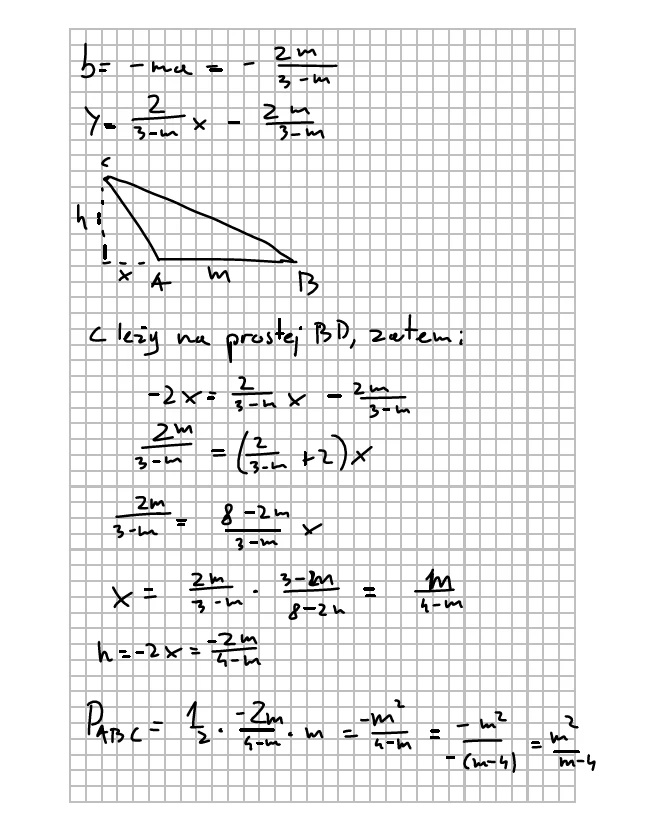 b = -ma = - \frac{2m}{3-m}
y = \frac{2}{3-m} x - \frac{2m}{3-m}
C
h
x A m B
C leży na prostej BD, zatem:
-2x = \frac{2}{3-m} x - \frac{2m}{3-m}
\frac{2m}{3-m} = (\frac{2}{3-m} + 2) x
\frac{2m}{3-m} = \frac{8-2m}{3-m} x
x = \frac{2m}{3-m} \cdot \frac{3-m}{8-2m} = \frac{m}{4-m}
h = -2x = \frac{-2m}{4-m}
P_{ABC} = \frac{1}{2} \cdot \frac{-2m}{4-m} \cdot m = \frac{-m^2}{4-m} = \frac{-m^2}{-(m-4)} = \frac{m^2}{m-4}